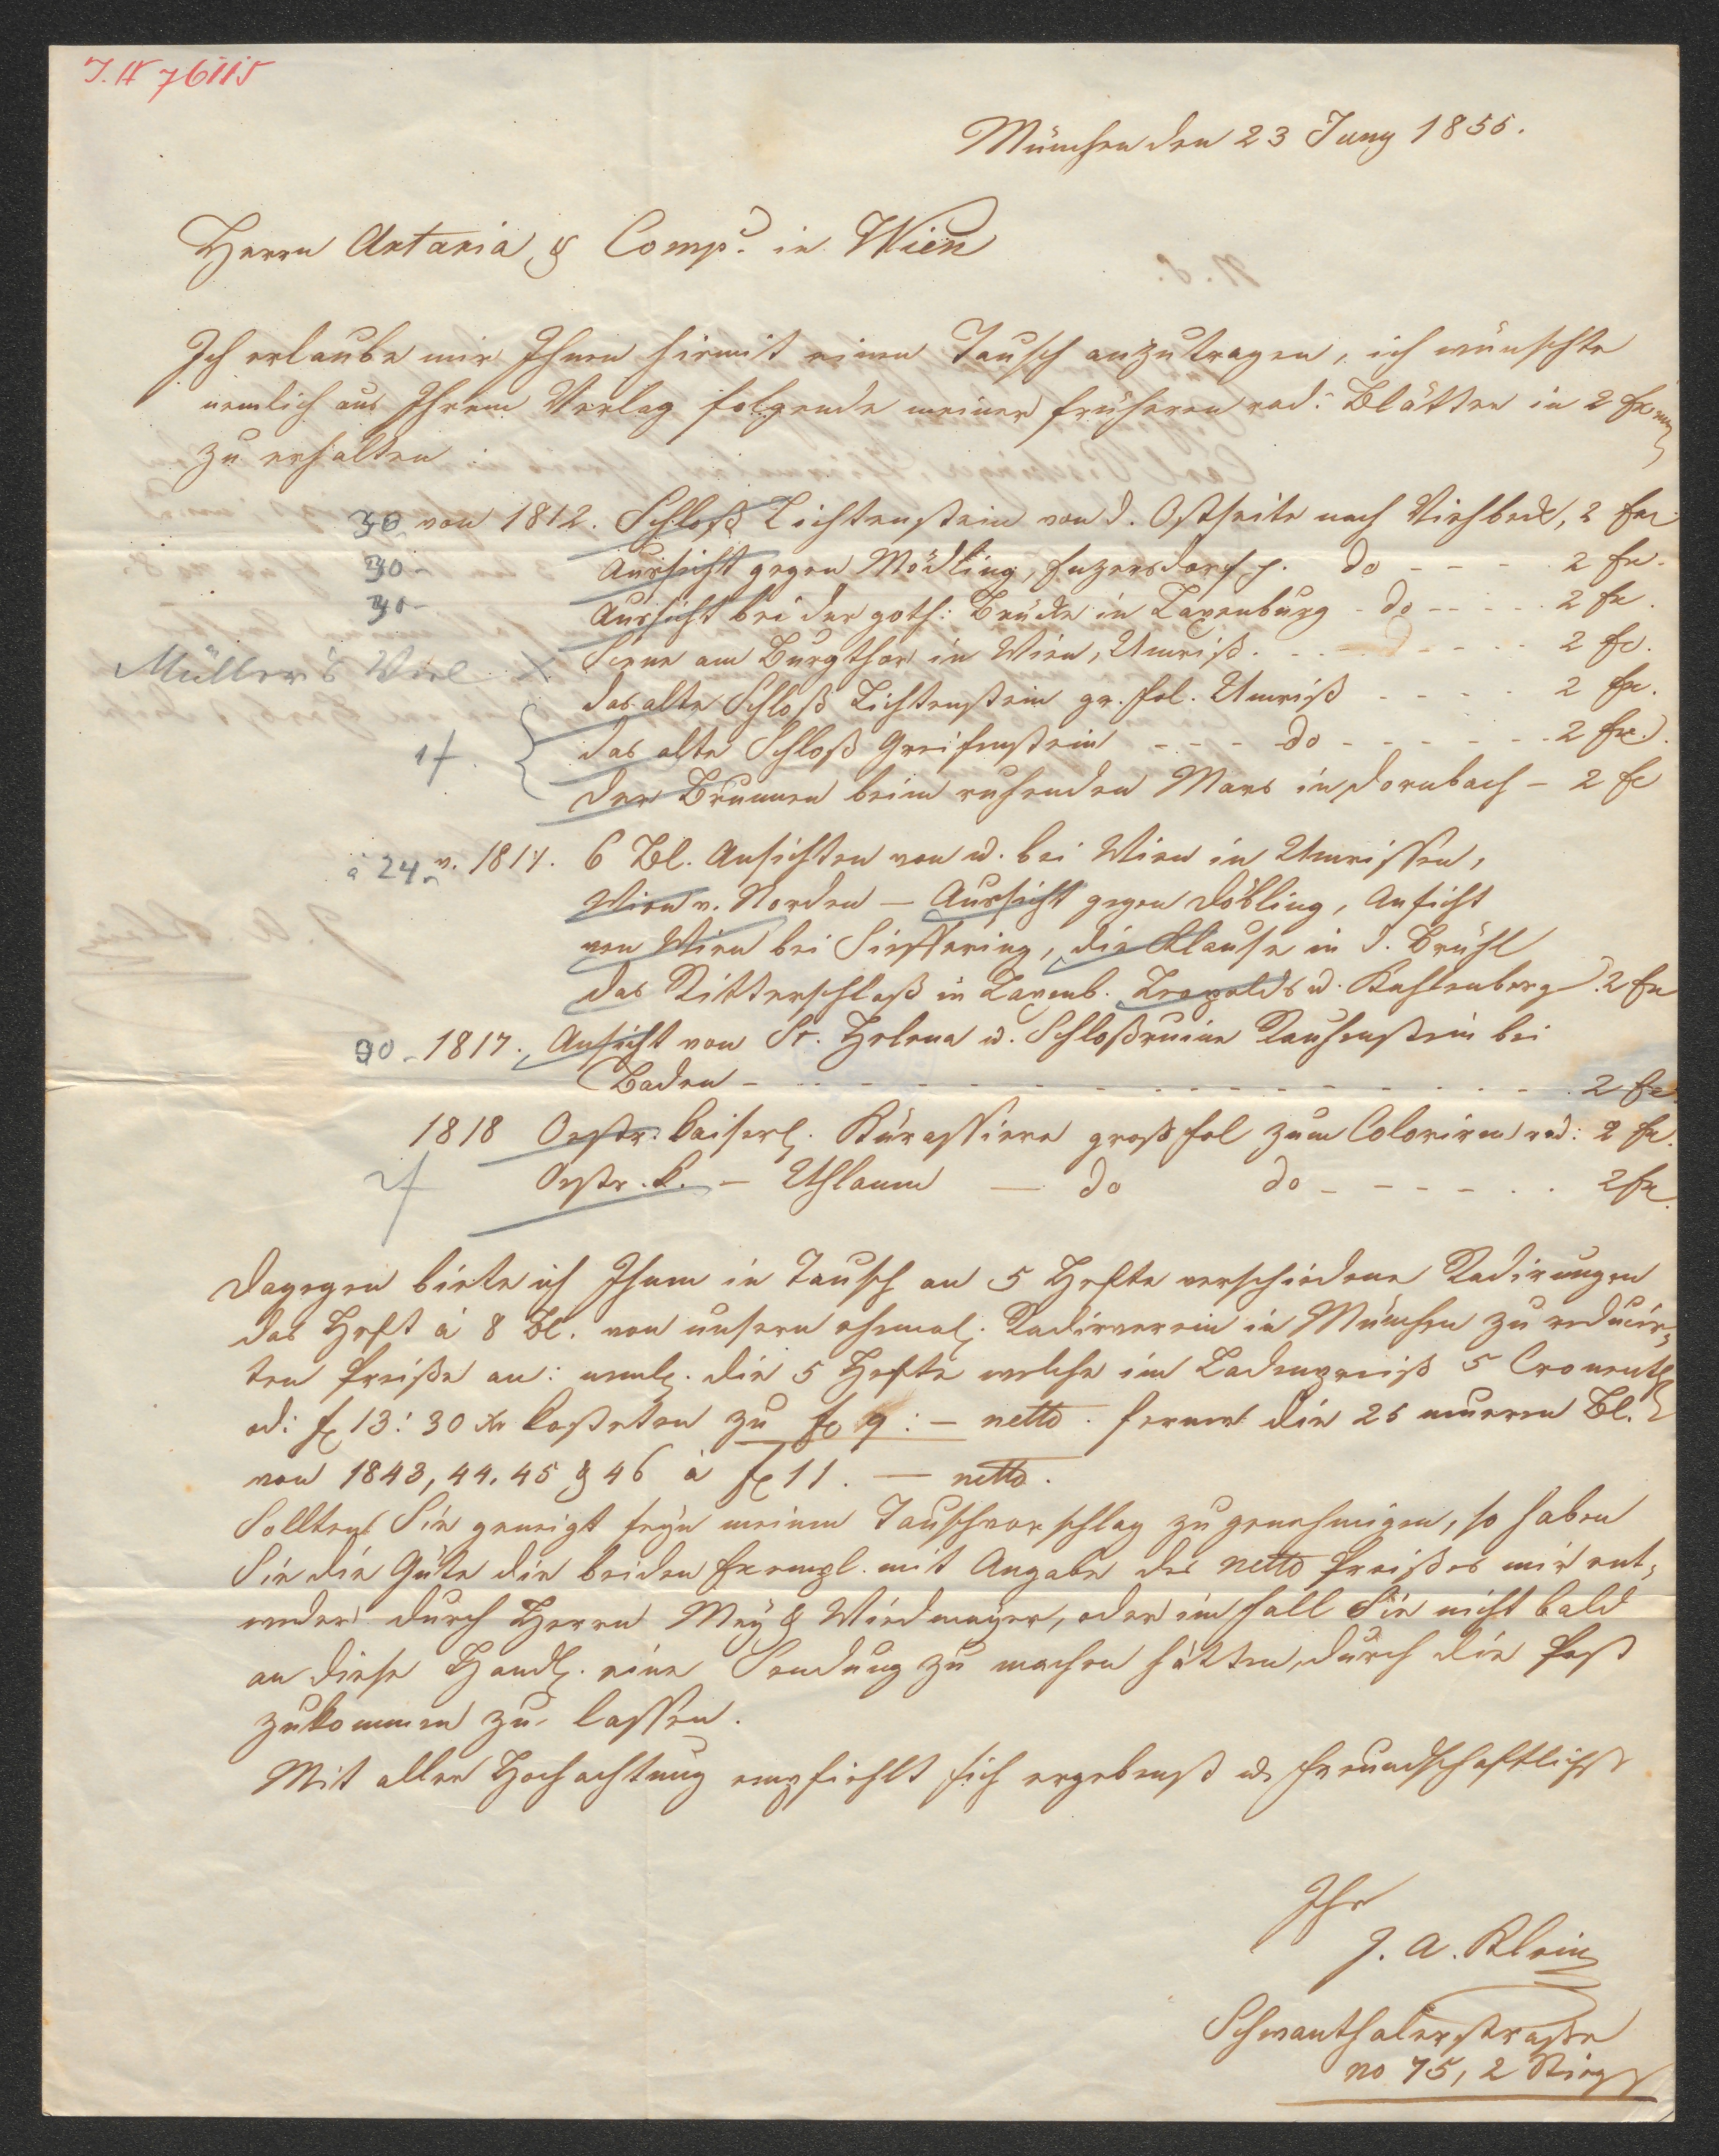 I. N 76115
München den 23 Juny 1855.
Herrn Artaria & Comp. in Wien
Ich erlaube mir Ihnen hiemit einen Tausch anzutragen, ich wünschte
nemlich aus Ihrem Verlag folgende meiner früheren rad: Blätter in 2 Ex
zu erhalten:
30 von 1812. Schloß Lichtenstein von d. Ostseite nach Viehbeck, 2 Ex
30 - Aussicht gegen Mödling, Enzersdorf p. do - - - 2 Ex.
30 - Aussicht bei der goth: Brücke in Laxenburg - do - - - 2 Ex.
Müller's Verl X Scene am Burgthor in Wien, Umriß. - - - 2 Ex.
das alte Schloß Lichtenstein gr. fol. Umriß - - - - 2 Ex.
1 f. { das alte Schloß Greifenstein - - - do - - - - - 2 Ex.
der Brunnen beim ruhenden Mars in Dornbach - 2 Ex
à 24 v. 1814. 6 Bl. Ansichten von u. bei Wien in Umrissen,
Wien v. Norden — Aussicht gegen Döbling, Ansicht
von Wien bei Siessering, die Klause in d. Brühl
das Ritterschloß in Laxenb. Leopolds u. Kahlenberg. 2 Ex
90 - 1817. Ansicht von St. Helena u. Schloßruine Rauhenstein bei
Baden - - - - - - - - 2 Ex.
1818 Oestr: kaiserl. Kürassiere groß fol zum Coloriren rad: 2 Ex.
2 f Oestr. k. — Uhlanen — do do - - - - 2 Ex.
Dagegen biete ich Ihnen in Tausch an 5 Hefte verschiedene Radirungen
das Heft à 8 Bl. von unsern ehemal. Radirverein in München zu reducir-
ten Preiße an: neml. die 5 Hefte welche im Ladenpreiß 5 Cronenth
od: f 13: 30 xr kosteten zu f 9: — netto. ferner die 25 neueren Bl.
von 1843, 44, 45 & 46 à f 11. — netto.
Sollten Sie geneigt seyn meinen Tauschvorschlag zu genehmigen, so haben
Sie die Güte die beiden Exempl. mit Angabe des netto Preißes mir ent-
weder durch Herrn Mey & Wiedmayer, oder im Fall Sie nicht bald
an diese Handl. eine Sendung zu machen hätten, durch die Post
zukommen zu lassen.
Mit aller Hochachtung empfiehlt sich ergebenst u. freundschaftlichst
Ihr
J. A. Klein
Schwanthalerstrasse
no 75, 2 Stieg